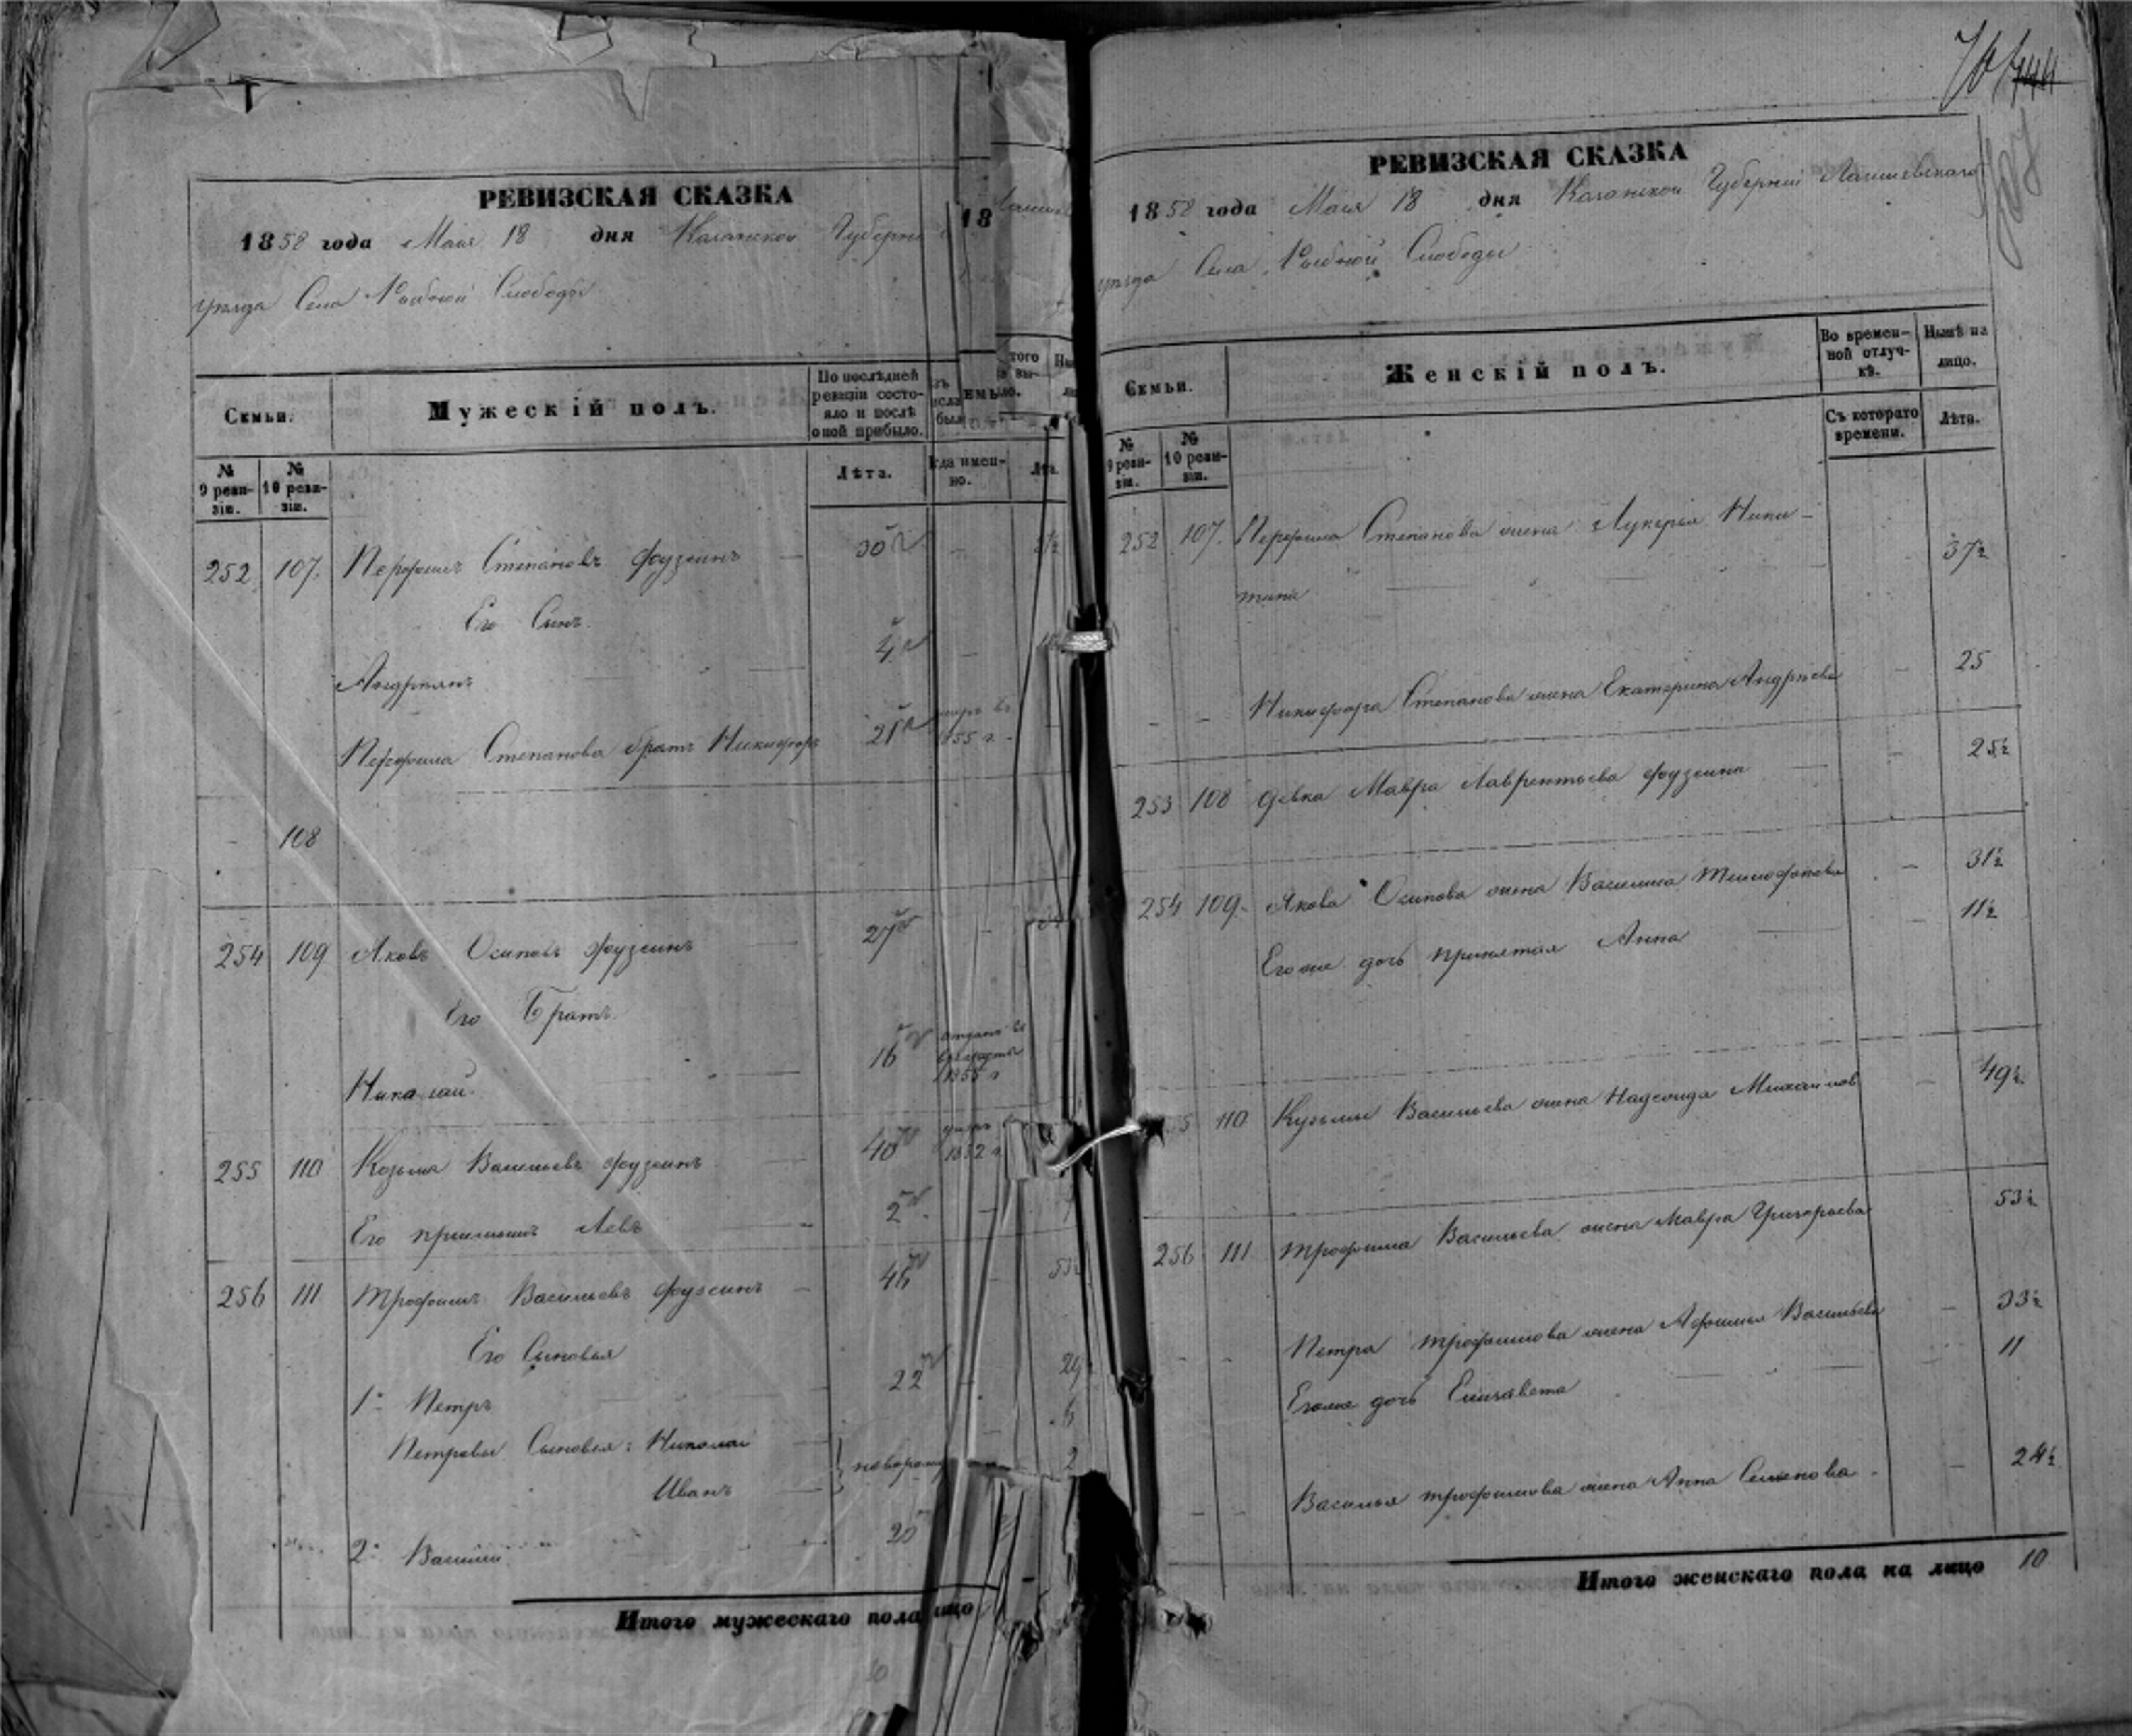 РЕВИЗСКАЯ СКАЗКА
1858 года Мая 18 дня Казанской Губерні
уѣзда Села Рыбной Слободы
Семьи.
Мужескій полъ.
По послѣдней ревизіи состояло и послѣ оной прибыло.
№ 9 ревизіи.
№ 10 ревизіи.
Лѣта.
252 107. Перфилъ Степановъ Фузеинъ 30
Его Сынъ.
Андриянъ 4
Перфила Степанова братъ Никифоръ 21 1855 г.
108
254 109 Яковъ Осиповъ Фузеинъ 27
Его Братъ.
Николай 16 1855 г
255 110 Козьма Васильевъ Фузеинъ 40 умеръ 1852 г
Его приемышъ Левъ 2
256 111 Трофимъ Васильевъ Фузеинъ 46
Его Сыновья
1й Петръ 22 29
Петровы Сыновья: Николай 6
Иванъ 2
2й Василий 20
Итого мужескаго пола лицо
РЕВИЗСКАЯ СКАЗКА
1858 года Мая 18 дня Казанской Губерніи Лаишевскаго
уѣзда Села Рыбной Слободы
Семьи.
Женскій полъ.
Во временной отлучкѣ.
Нынѣ на лицо.
№ 9 ревизіи.
№ 10 ревизіи.
Съ котораго времени.
Лѣта.
252 107. Перфила Степанова жена Лукерья Ники-
тина 37½
Никифора Степанова жена Екатерина Андрѣева 25
253 108 Девка Мавра Лаврентьева Фузеина 25½
254 109. Якова Осипова жена Василиса Тимофѣева 31½
Егоже дочь принятая Анна 11½
5 110 Кузьмы Васильева жена Надежда Михайлов 49½
256 111 Трофима Васильева жена Мавра Григорьева 53½
Петра Трофимова жена Афимья Васильева 33½
Егоже дочь Елизавета 11
Василья Трофимова жена Анна Семенова 24½
Итого женскаго пола на лицо 10